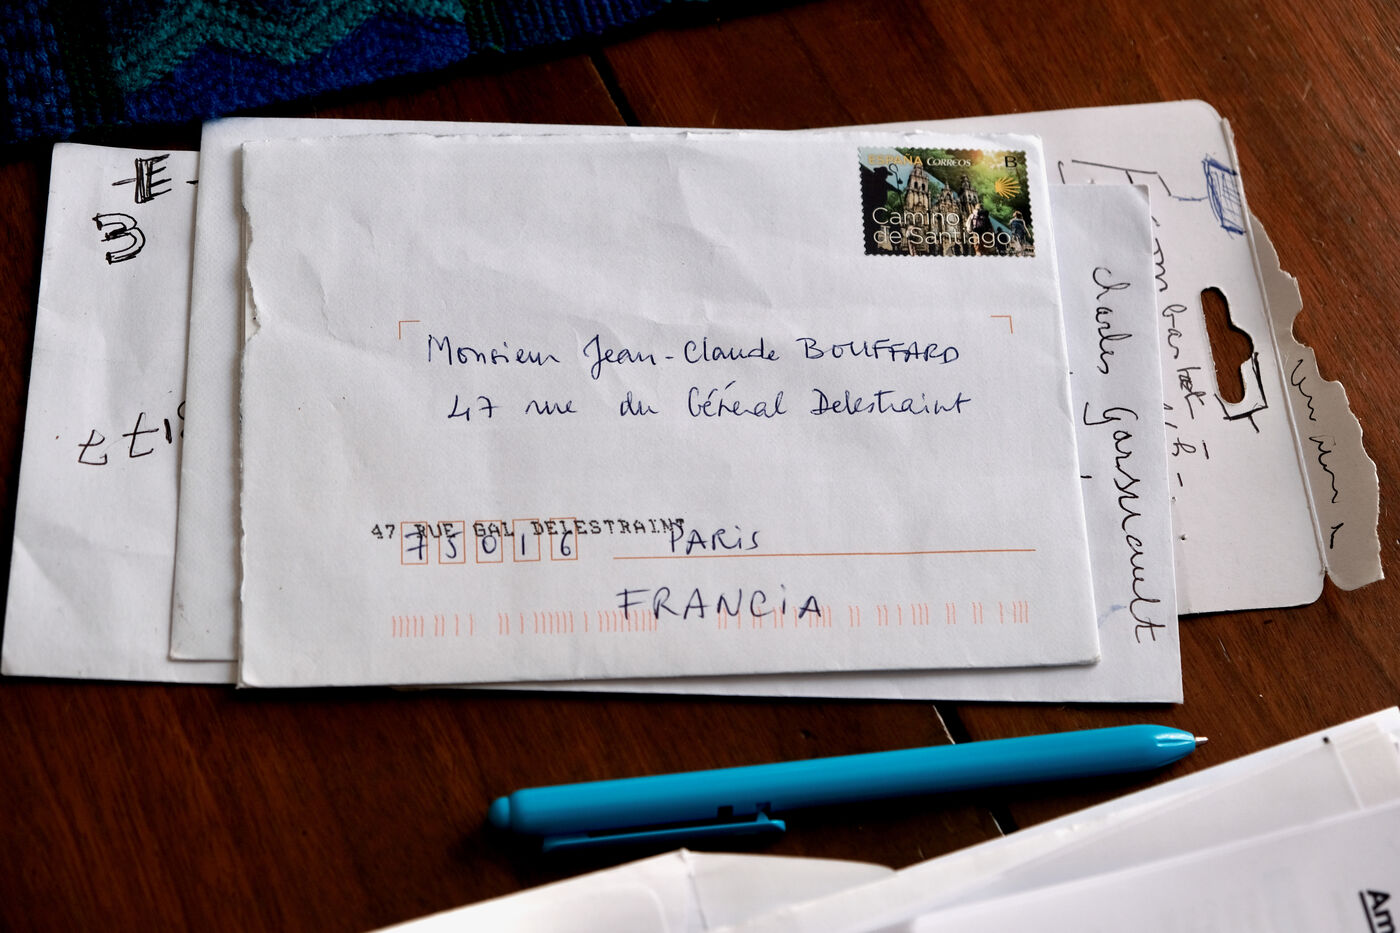 ESPAÑA CORREOS B
Camino
de Santiago
Monsieur Jean-Claude BOUFFARD
47 rue du Général Delestraint
47 RUE GAL DELESTRAINT
75016 PARIS
FRANCIA
E
3
Charles
Am